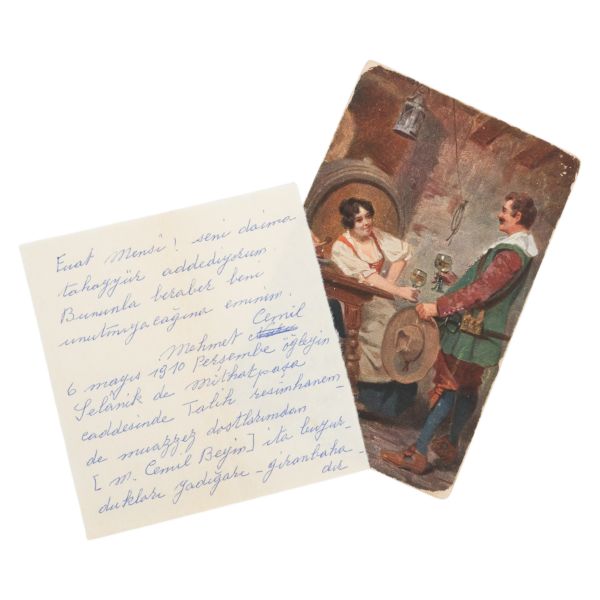 Fuat Mensi! seni daima
tahayyür addediyorum.
Bununla beraber beni
unutmıyacağına eminim.
Mehmet Cemil
6 mayıs 1910 Perşembe öğleyin
Selânik de mithatpaşa
caddesinde Talik resimhanem_
de muazzez dostlarımdan
[ M. Cemil Beyin ] ita buyur_
dukları yadigârı _ giranbaha
dır _